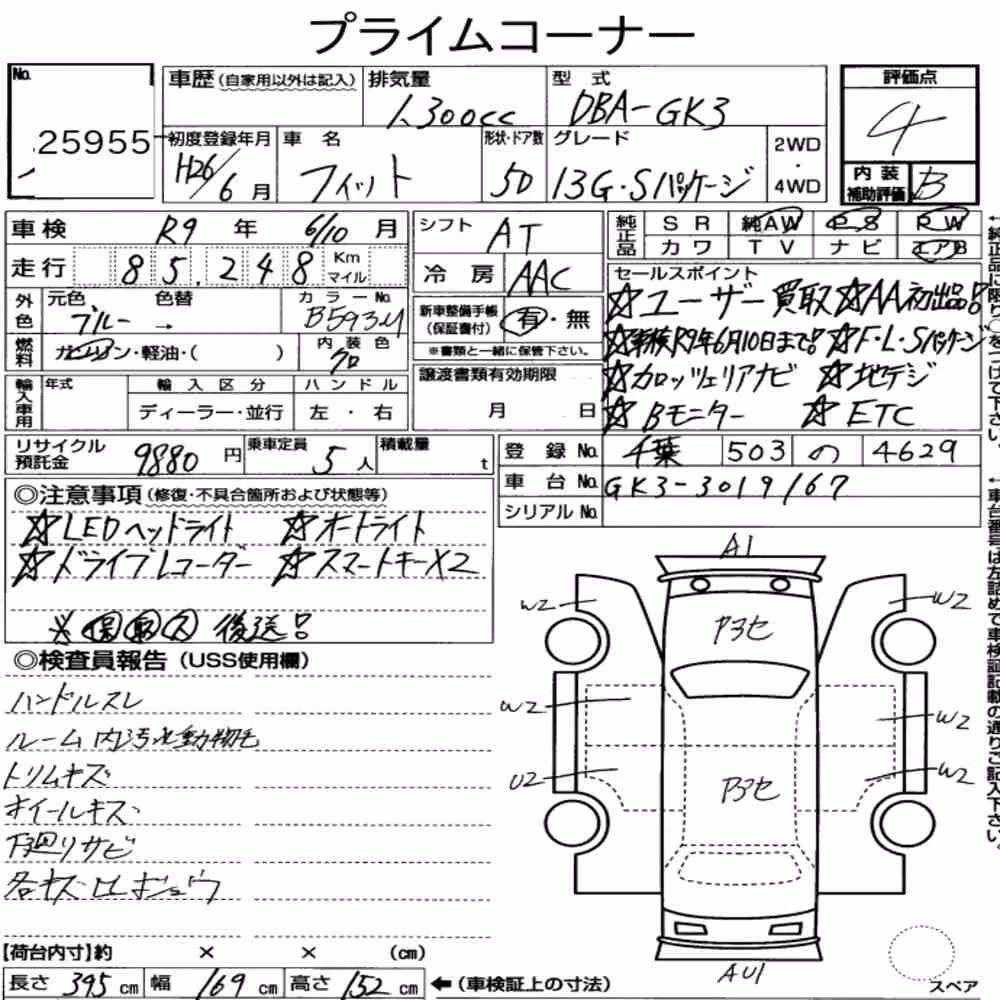 プライムコーナー
No. 25955
車歴 (自家用以外は記入) 排気量 1300cc 型式 DBA-GK3
評価点 4
初度登録年月 H26/6月 車名 フィット 形状・ドア数 5D グレード 13G・Sパッケージ 2WD・4WD
内装補助評価 B
車検 R9年 6/10月
走行 85,248 Km マイル
シフト AT
冷房 AAC
純正品 SR 純AW PS PW
カワ TV ナビ エアB
外色 元色 ブルー → 色替 カラーNo. B593M
燃料 ガソリン・軽油・( ) 内装色 クロ
新車整備手帳(保証書付) 有・無
※書類と一緒に保管下さい。
セールスポイント
☆ユーザー買取☆AA初出品!
☆車検R9年6月10日まで!☆F・L・Sパッケージ
☆カロッツェリアナビ ☆地デジ
☆Bモニター ☆ETC
輸入車用 年式 輸入区分 ハンドル
ディーラー・並行 左・右
譲渡書類有効期限
月 日
リサイクル預託金 9880円 乗車定員 5人 積載量 t
登録No. 千葉 503 の 4629
車台No. GK3-3019167
シリアルNo.
◎注意事項(修復・不具合箇所および状態等)
☆LEDヘッドライト ☆オートライト
☆ドライブレコーダー ☆スマートキーX2
※ 保 取 ス 後送!
◎検査員報告(USS使用欄)
ハンドルスレ
ルーム内汚れ動物毛
トリムキズ
ホイールキズ
下廻リサビ
各キズ凹
A1
W2
W2
P3セ
W2
W2
U2
W2
P3セ
AU1
スペア
【荷台内寸】約 × × (cm)
長さ 395 cm 幅 169 cm 高さ 152 cm ←(車検証上の寸法)
←純正品に限り○をつけて下さい。
←車台番号は左詰めで車検証記載の通りご記入下さい。